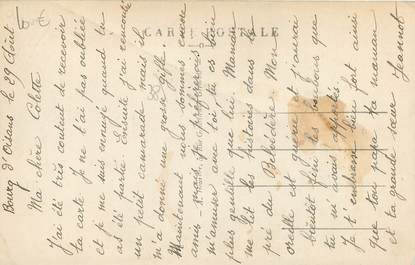 Bourg d'Oisans le 29 Avril
Ma chère Colette
J'ai été très content de recevoir
ta carte. Je ne t'ai pas oubliée
et je me suis ennuyé quand tu
as été partie. Ensuite j'ai rencontré
un petit camarade mais il
m'a donné une grosse gifle.
Maintenant nous sommes encore
amis mais je préfèrerais
m'amuser avec toi, tu es bien
plus gentille que lui. Maman
me lit les histoires dans le
pré du Belvédère. Mon
oreille est guérie et j'aurai
bientôt fini les bonbons que
tu m'avais
Je t'embrasse bien fort ainsi
que ton papa ta maman
et ta grande sœur Jeannot
CARTE POSTALE